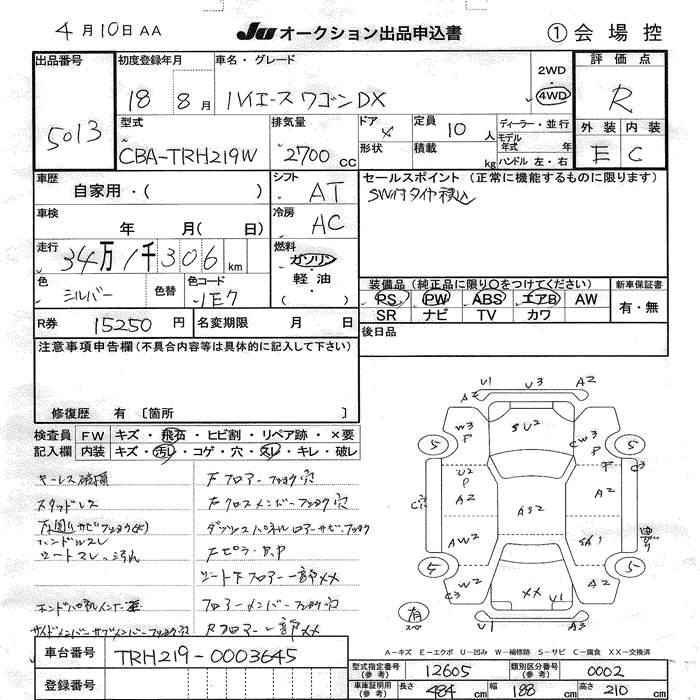 4月10日AA
JU オークション出品申込書
① 会場控
出品番号 5013
初度登録年月 18年 8月
車名・グレード ハイエースワゴンDX
2WD
4WD
評価点 R
外装 E 内装 C
型式 CBA-TRH219W
排気量 2700 cc
ドア 4
形状
定員 10人
積載 kg
ディーラー・並行
モデル年式 年
ハンドル 左・右
車歴 自家用・( )
シフト AT
セールスポイント (正常に機能するものに限ります)
SW付タイヤ積込
車検 年 月( 日)
冷房 AC
走行 34万1千306 km
燃料 ガソリン
軽油
( )
色 シルバー
色替
色コード 1E7
装備品 (純正品に限り○をつけてください)
PS PW ABS エアB AW
SR ナビ TV カワ
新車保証書
有・無
R券 15250円
名変期限 月 日
後日品
注意事項申告欄(不具合内容等は具体的に記入して下さい)
修復歴 有 [箇所 ]
検査員 FW キズ・飛石・ヒビ割・リペア跡・×要
記入欄 内装 キズ・汚レ・コゲ・穴・スレ・キレ・破レ
キーレス破損
スタッドレス
ハンドルスレ
シートスレ・汚れ
Fフロアーフショク穴
Fクロスメンバーフショク穴
FピラーB,P
シート下フロアー一部XX
フロアーメンバーフショク穴
サイドメンバーサブメンバーフショク穴
Rフロアー一部XX
U1 U3 A2
A2
W3 P
SU2
CW3 P
5 5
C3
U2 P
A2
AS2
A2
AW2
SA1
5 5
W2
C3
XX
A2
U1 U1 A3
有 スペ
A-キズ E-エクボ U-凹み W-補修跡 S-サビ C-腐食 XX-交換済
車台番号 TRH219-0003645
登録番号
型式指定番号(参考) 12605
類別区分番号(参考) 0002
車庫証明用(参考) 長さ 484 cm 幅 188 cm 高さ 210 cm